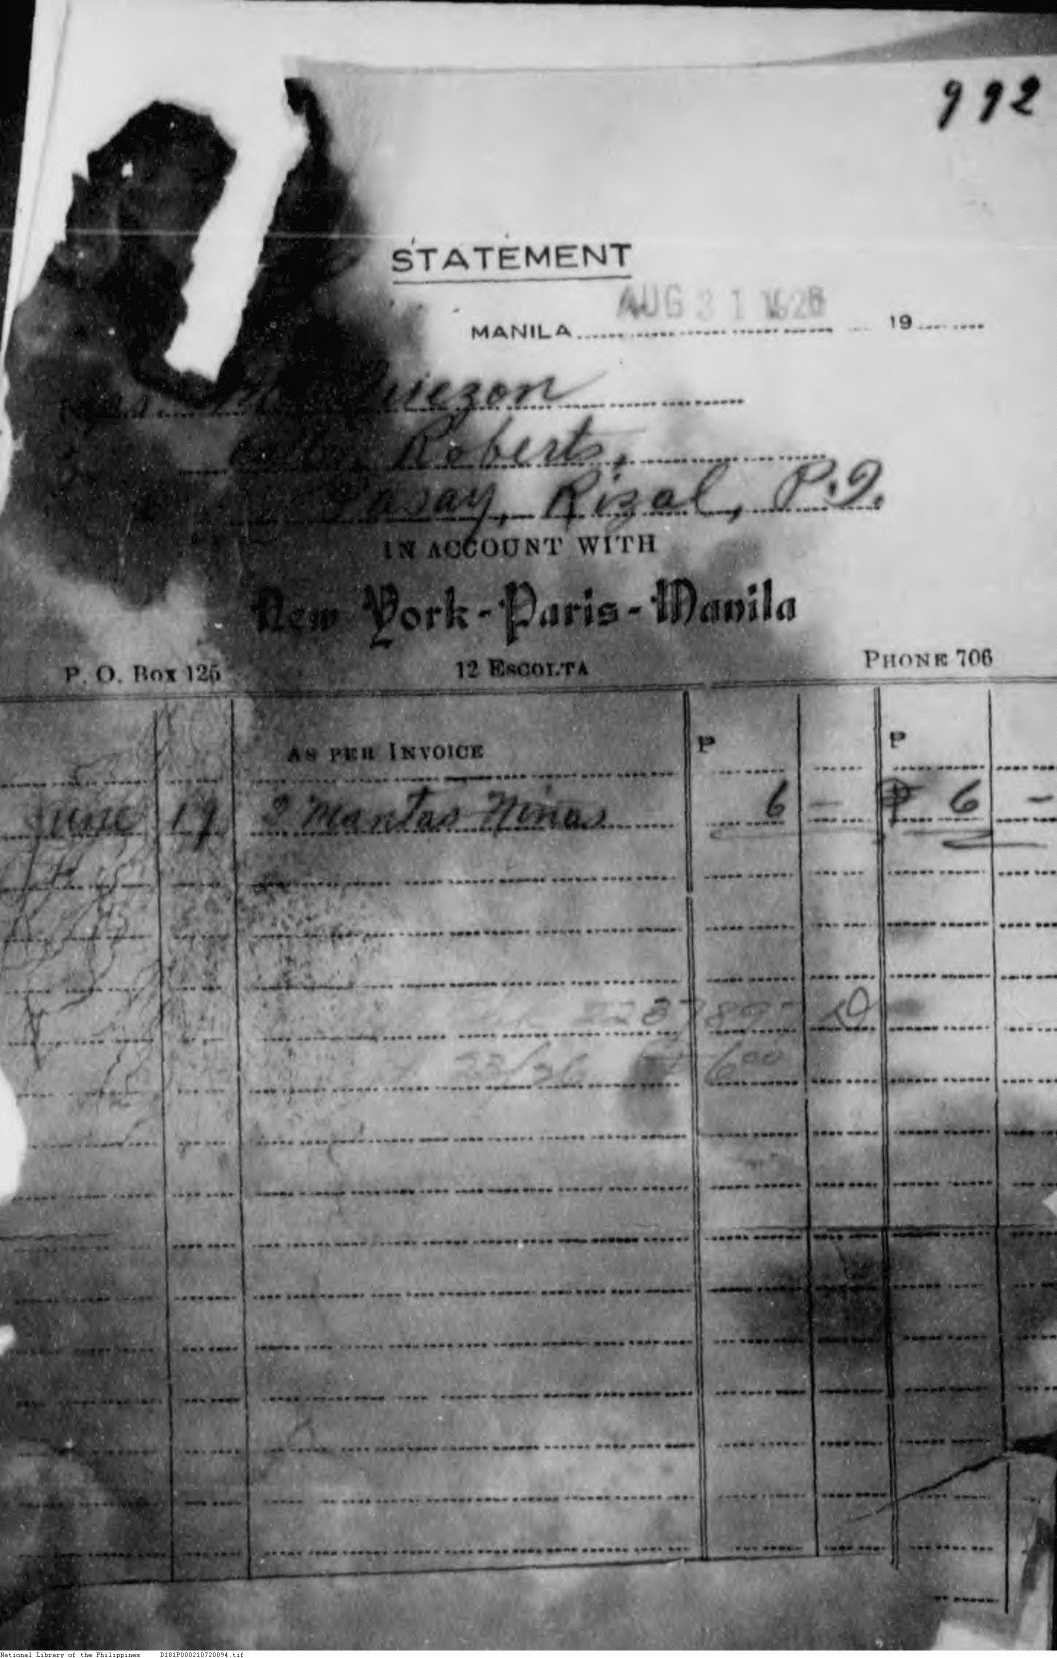 992
STATEMENT
AUG 31 1926
MANILA 19
Quezon
Calle Roberts,
Pasay, Rizal, P.I.
IN ACCOUNT WITH
New York-Paris-Manila
P. O. Box 125 12 ESCOLTA PHONE 706
AS PER INVOICE P P
June 19 2 Mantas Niñas 6 — ₱ 6 —
2237897
23/26 ₱ 6.00
National Library of the Philippines D181P000210720094.tif